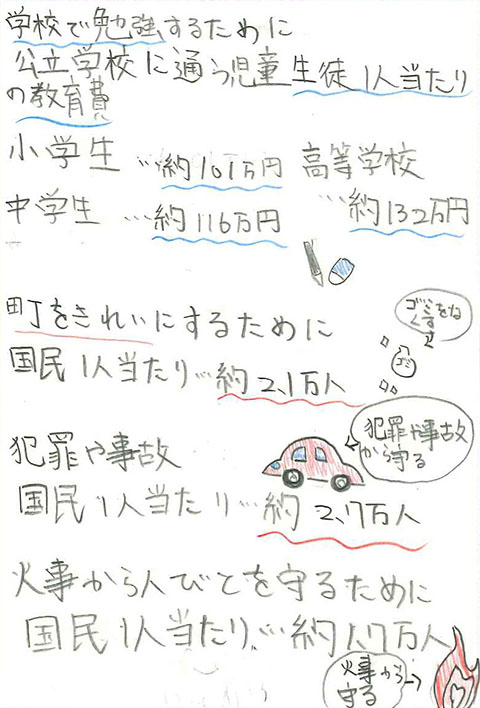 学校で勉強するために
公立学校に通う児童生徒1人当たり
の教育費
小学生 …約101万円
高等学校
中学生 …約116万円
…約132万円
町をきれいにするために
ゴミをな
くす
ゴミ
国民1人当たり…約2.1万人
犯罪や事故
犯罪や事故
から守る
国民1人当たり…約2.7万人
火事から人びとを守るために
国民1人当たり…約1.7万人
火事から
守る